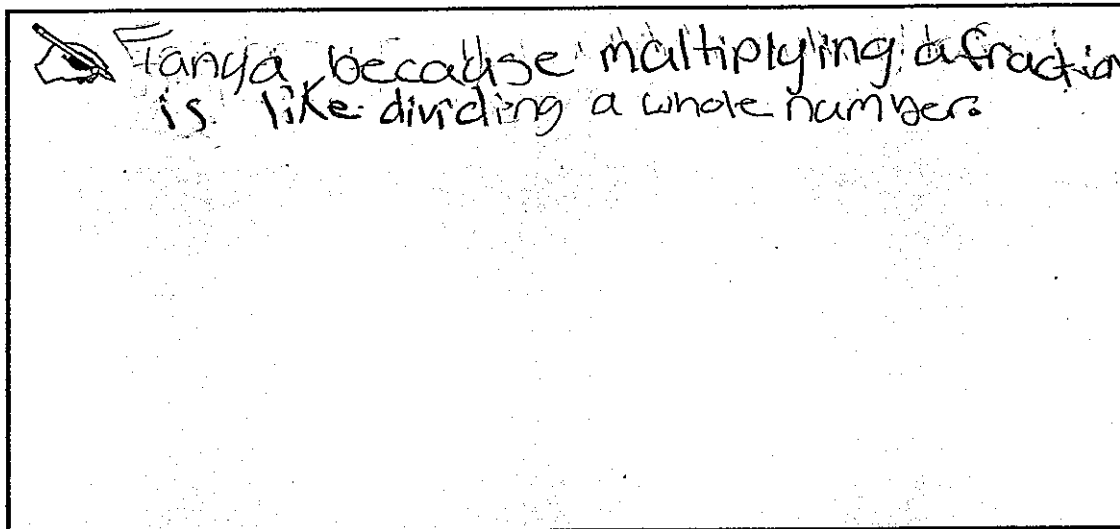 Tanya because multiplying a fraction
is like dividing a whole number.